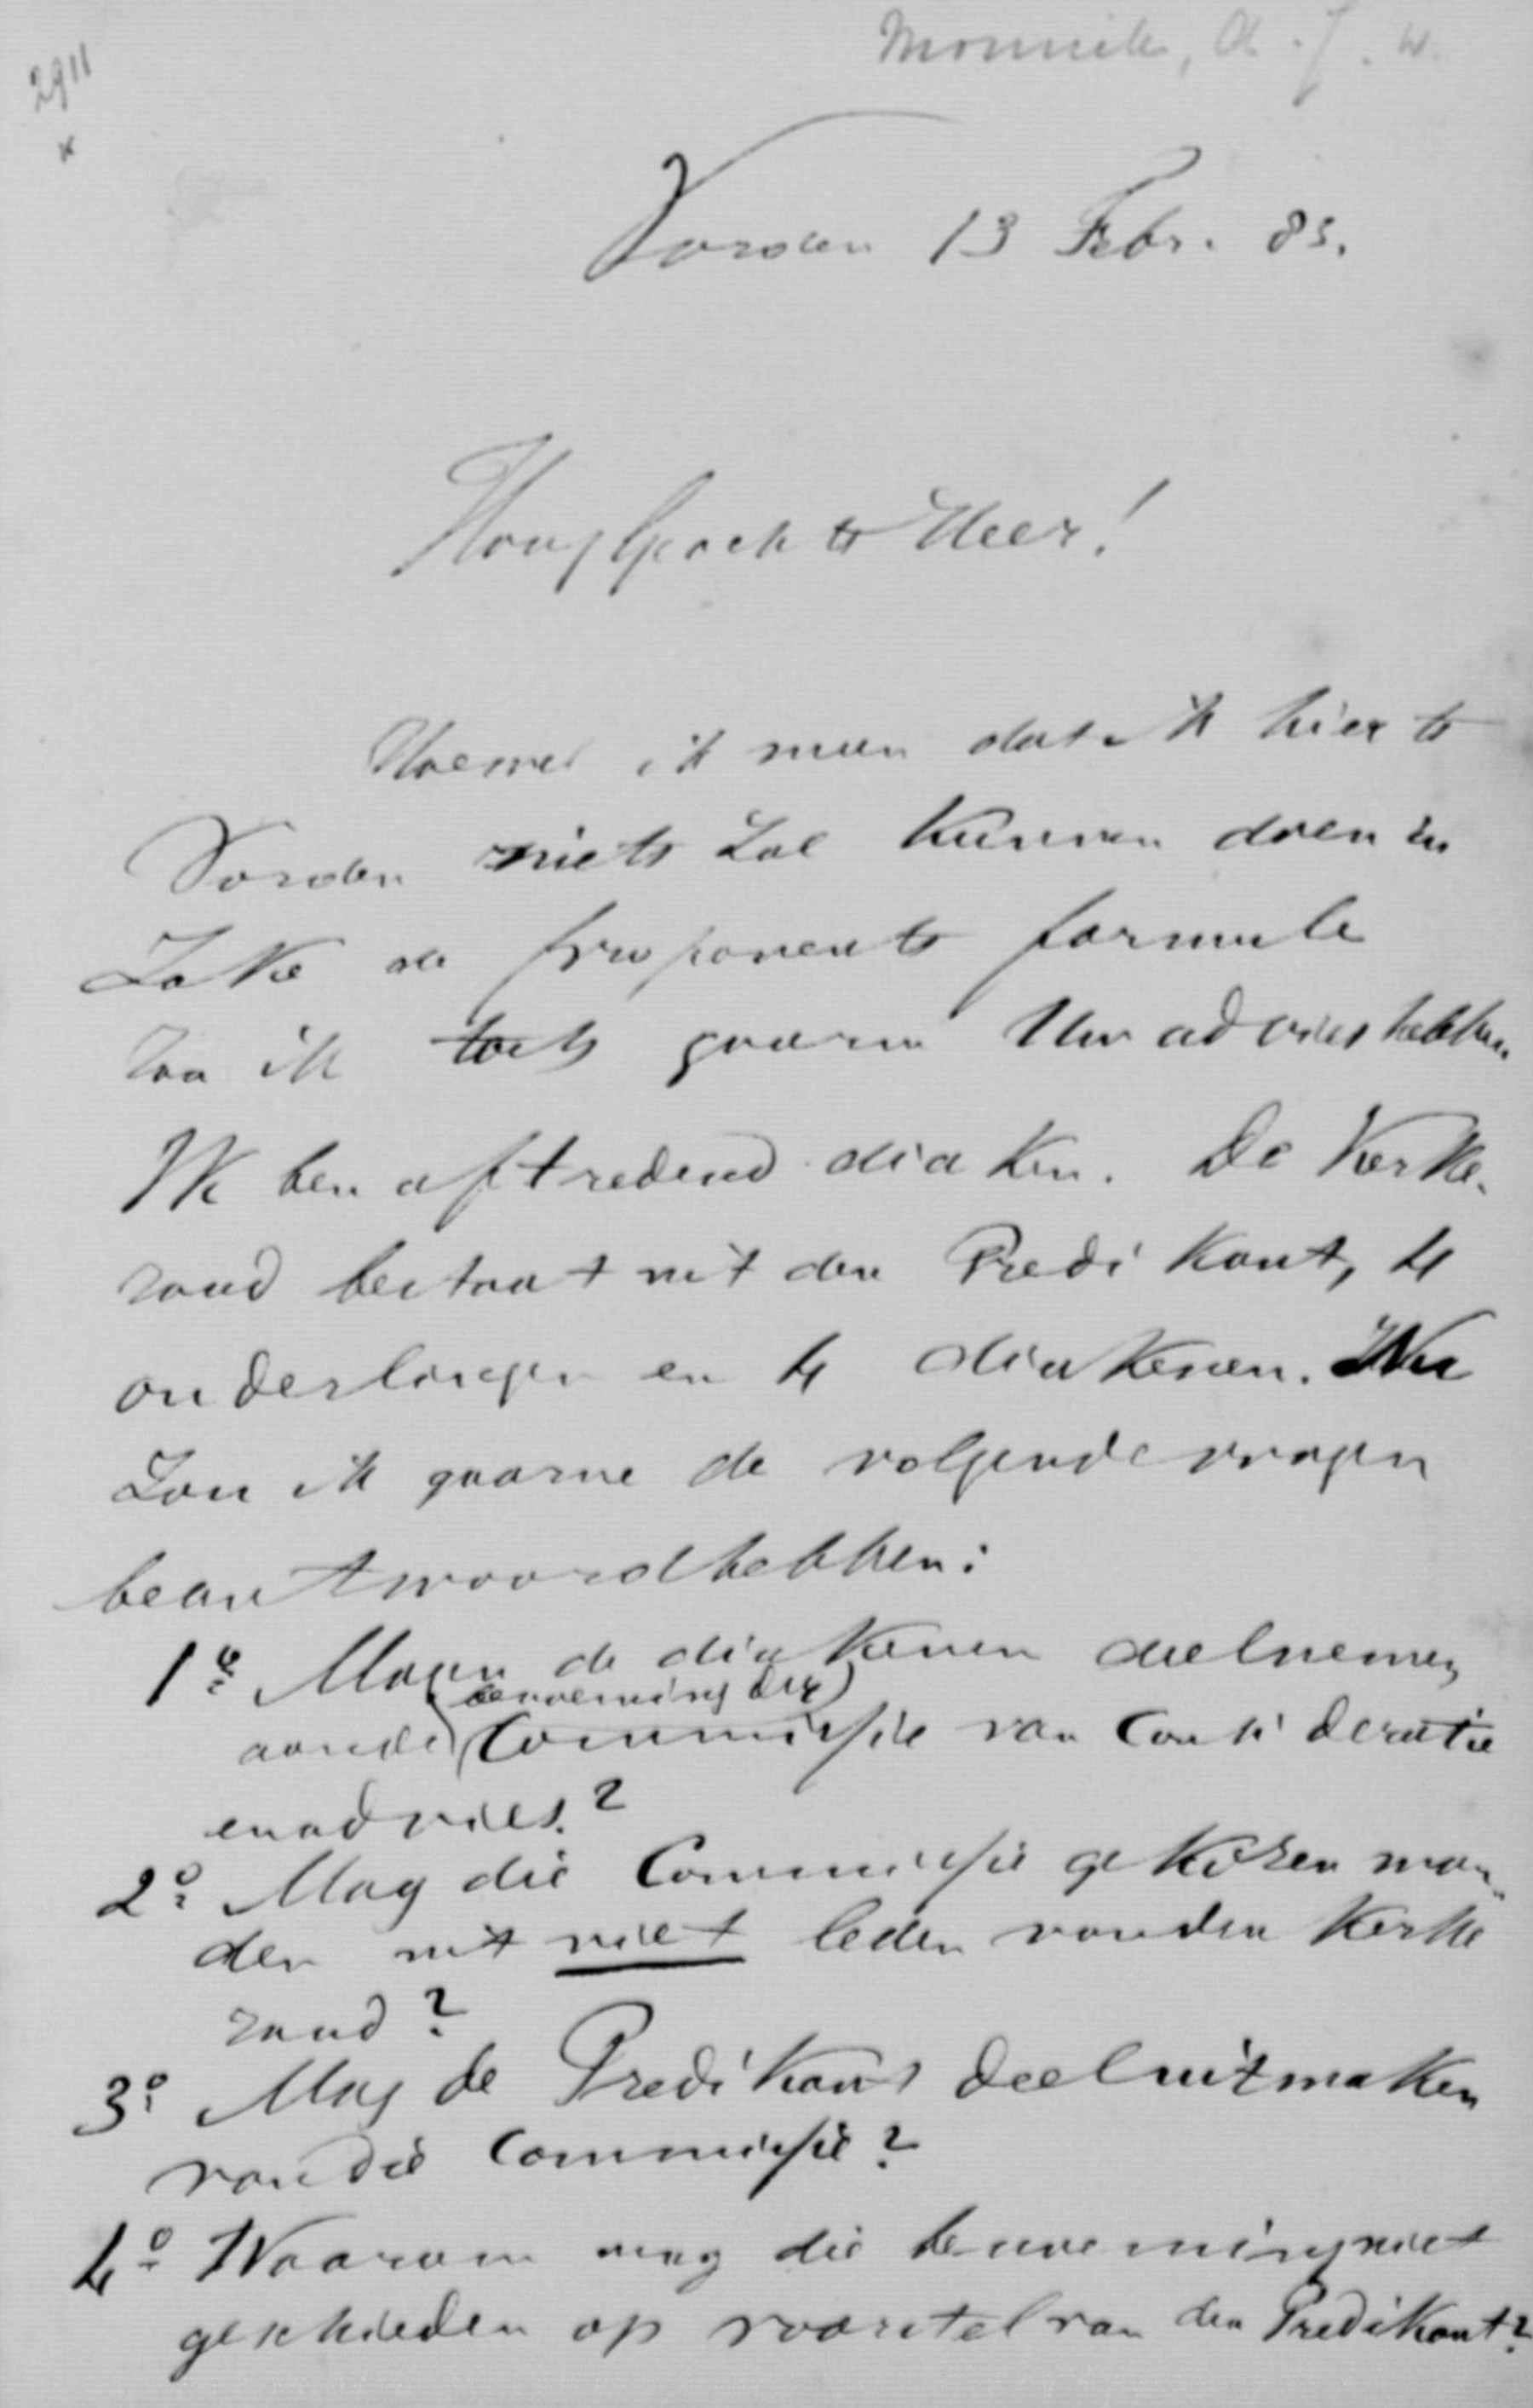 2911
x
Monnik, A. J. W.
Vorden 13 Febr. 83.
HoogGeachte Heer!
Hoewel ik meen dat ik hier te
Vorden niets zal kunnen doen in
Zake de proponents formule
zou ik toch gaarne Uw advies hebben.
Ik ben aftredend diaken. De Kerke-
raad bestaat uit den Predikant, 4
ouderlingen en 4 diakenen. Nu
Zou ik gaarne de volgende vragen
beantwoord hebben:
1e Mogen de diakenen deelnemen
(benoeming der)
aan de Commissie van Consideratie
en advies?
2o Mag die Commissie gekozen wor-
den uit niet leden van den Kerke
raad?
3o Mag de Predikant deel uitmaken
van die Commissie?
4o Waarom mag die benoeming niet
geschieden op voorstel van den Predikant?